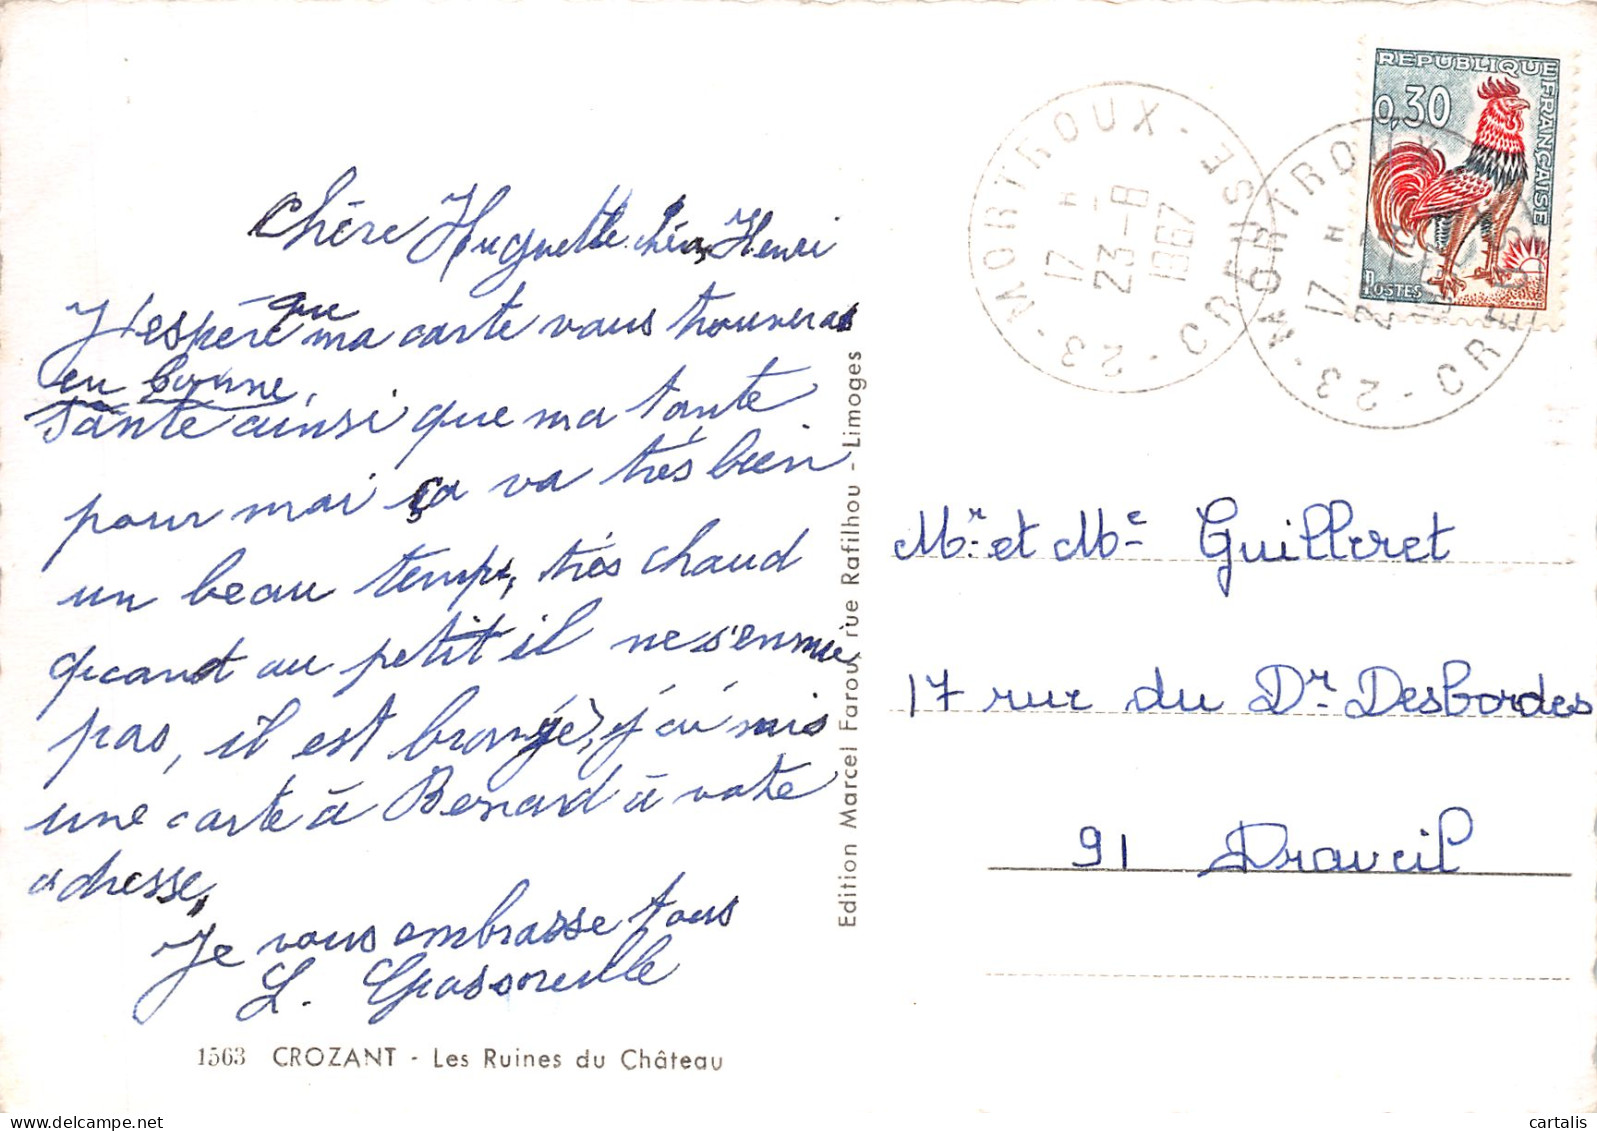 Chère Huguette chér Henri
J'espère que ma carte vous trouveras
en bonne,
santé ainsi que ma tante
pour moi ça va très bien
un beau temps, très chaud
quand au petit il ne s'ennuie
pas, il est bronzé, j'ai mis
une carte à Bernard à votre
adresse,
Je vous embrasse tous
L.
1563 CROZANT - Les Ruines du Château
Edition Marcel Farou, rue Rafilhou - Limoges
REPUBLIQUE FRANÇAISE
0,30
POSTES
23 - MORTROUX - CREUSE
17 H
23-8
1967
23 - MORTROUX
17 H
Mr et Me Guilleret
17 rue du Dr Desbordes
91 Draveil
cartalis